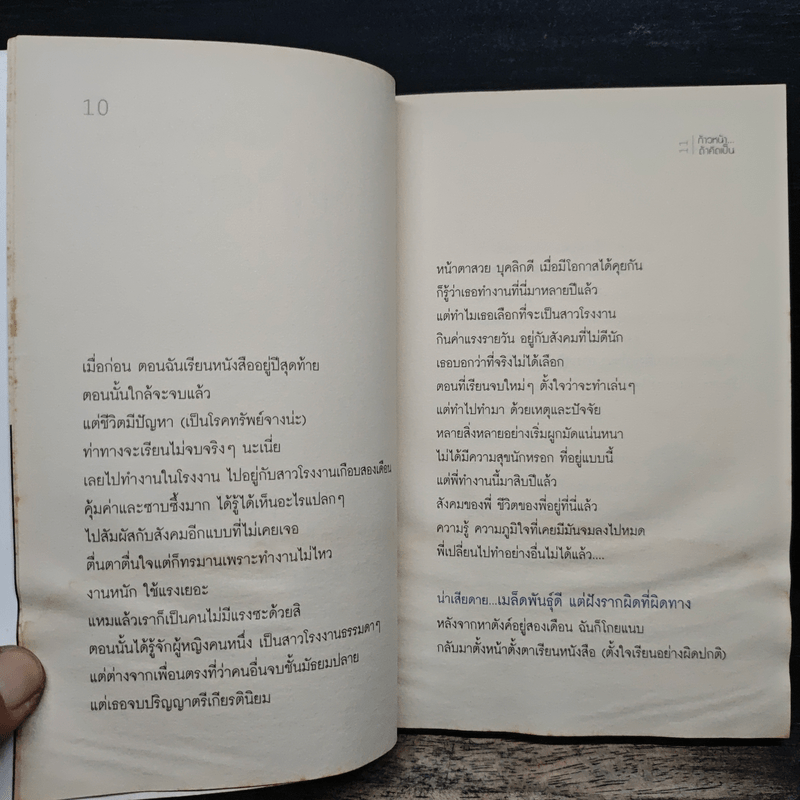 10
เมื่อก่อน ตอนฉันเรียนหนังสืออยู่ปีสุดท้าย
ตอนนั้นใกล้จะจบแล้ว
แต่ชีวิตมีปัญหา (เป็นโรคทรัพย์จางน่ะ)
ท่าทางจะเรียนไม่จบจริงๆ นะเนี่ย
เลยไปทำงานในโรงงาน ไปอยู่กับสาวโรงงานเกือบสองเดือน
คุ้มค่าและซาบซึ้งมาก ได้รู้ได้เห็นอะไรแปลกๆ
ไปสัมผัสกับสังคมอีกแบบที่ไม่เคยเจอ
ตื่นตาตื่นใจแต่ก็ทรมานเพราะทำงานไม่ไหว
งานหนัก ใช้แรงเยอะ
แหมแล้วเราก็เป็นคนไม่มีแรงซะด้วยสิ
ตอนนั้นได้รู้จักผู้หญิงคนหนึ่ง เป็นสาวโรงงานธรรมดาๆ
แต่ต่างจากเพื่อนตรงที่ว่าคนอื่นจบชั้นมัธยมปลาย
แต่เธอจบปริญญาตรีเกียรตินิยม
11
ก้าวหน้า...
ถ้าคิดเป็น
หน้าตาสวย บุคลิกดี เมื่อมีโอกาสได้คุยกัน
ก็รู้ว่าเธอทำงานที่นี่มาหลายปีแล้ว
แต่ทำไมเธอเลือกที่จะเป็นสาวโรงงาน
กินค่าแรงรายวัน อยู่กับสังคมที่ไม่ดีนัก
เธอบอกว่าที่จริงไม่ได้เลือก
ตอนที่เรียนจบใหม่ๆ ตั้งใจว่าจะทำเล่นๆ
แต่ทำไปทำมา ด้วยเหตุและปัจจัย
หลายสิ่งหลายอย่างเริ่มผูกมัดแน่นหนา
ไม่ได้มีความสุขนักหรอก ที่อยู่แบบนี้
แต่พี่ทำงานนี้มาสิบปีแล้ว
สังคมของพี่ ชีวิตของพี่อยู่ที่นี่แล้ว
ความรู้ ความภูมิใจที่เคยมีมันจมลงไปหมด
พี่เปลี่ยนไปทำอย่างอื่นไม่ได้แล้ว....
น่าเสียดาย...เมล็ดพันธุ์ดี แต่ฝังรากผิดที่ผิดทาง
หลังจากหาตังค์อยู่สองเดือน ฉันก็โกยแนบ
กลับมาตั้งหน้าตั้งตาเรียนหนังสือ (ตั้งใจเรียนอย่างผิดปกติ)